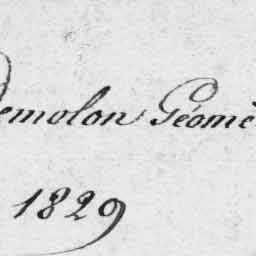 Demolon Géomè
1829